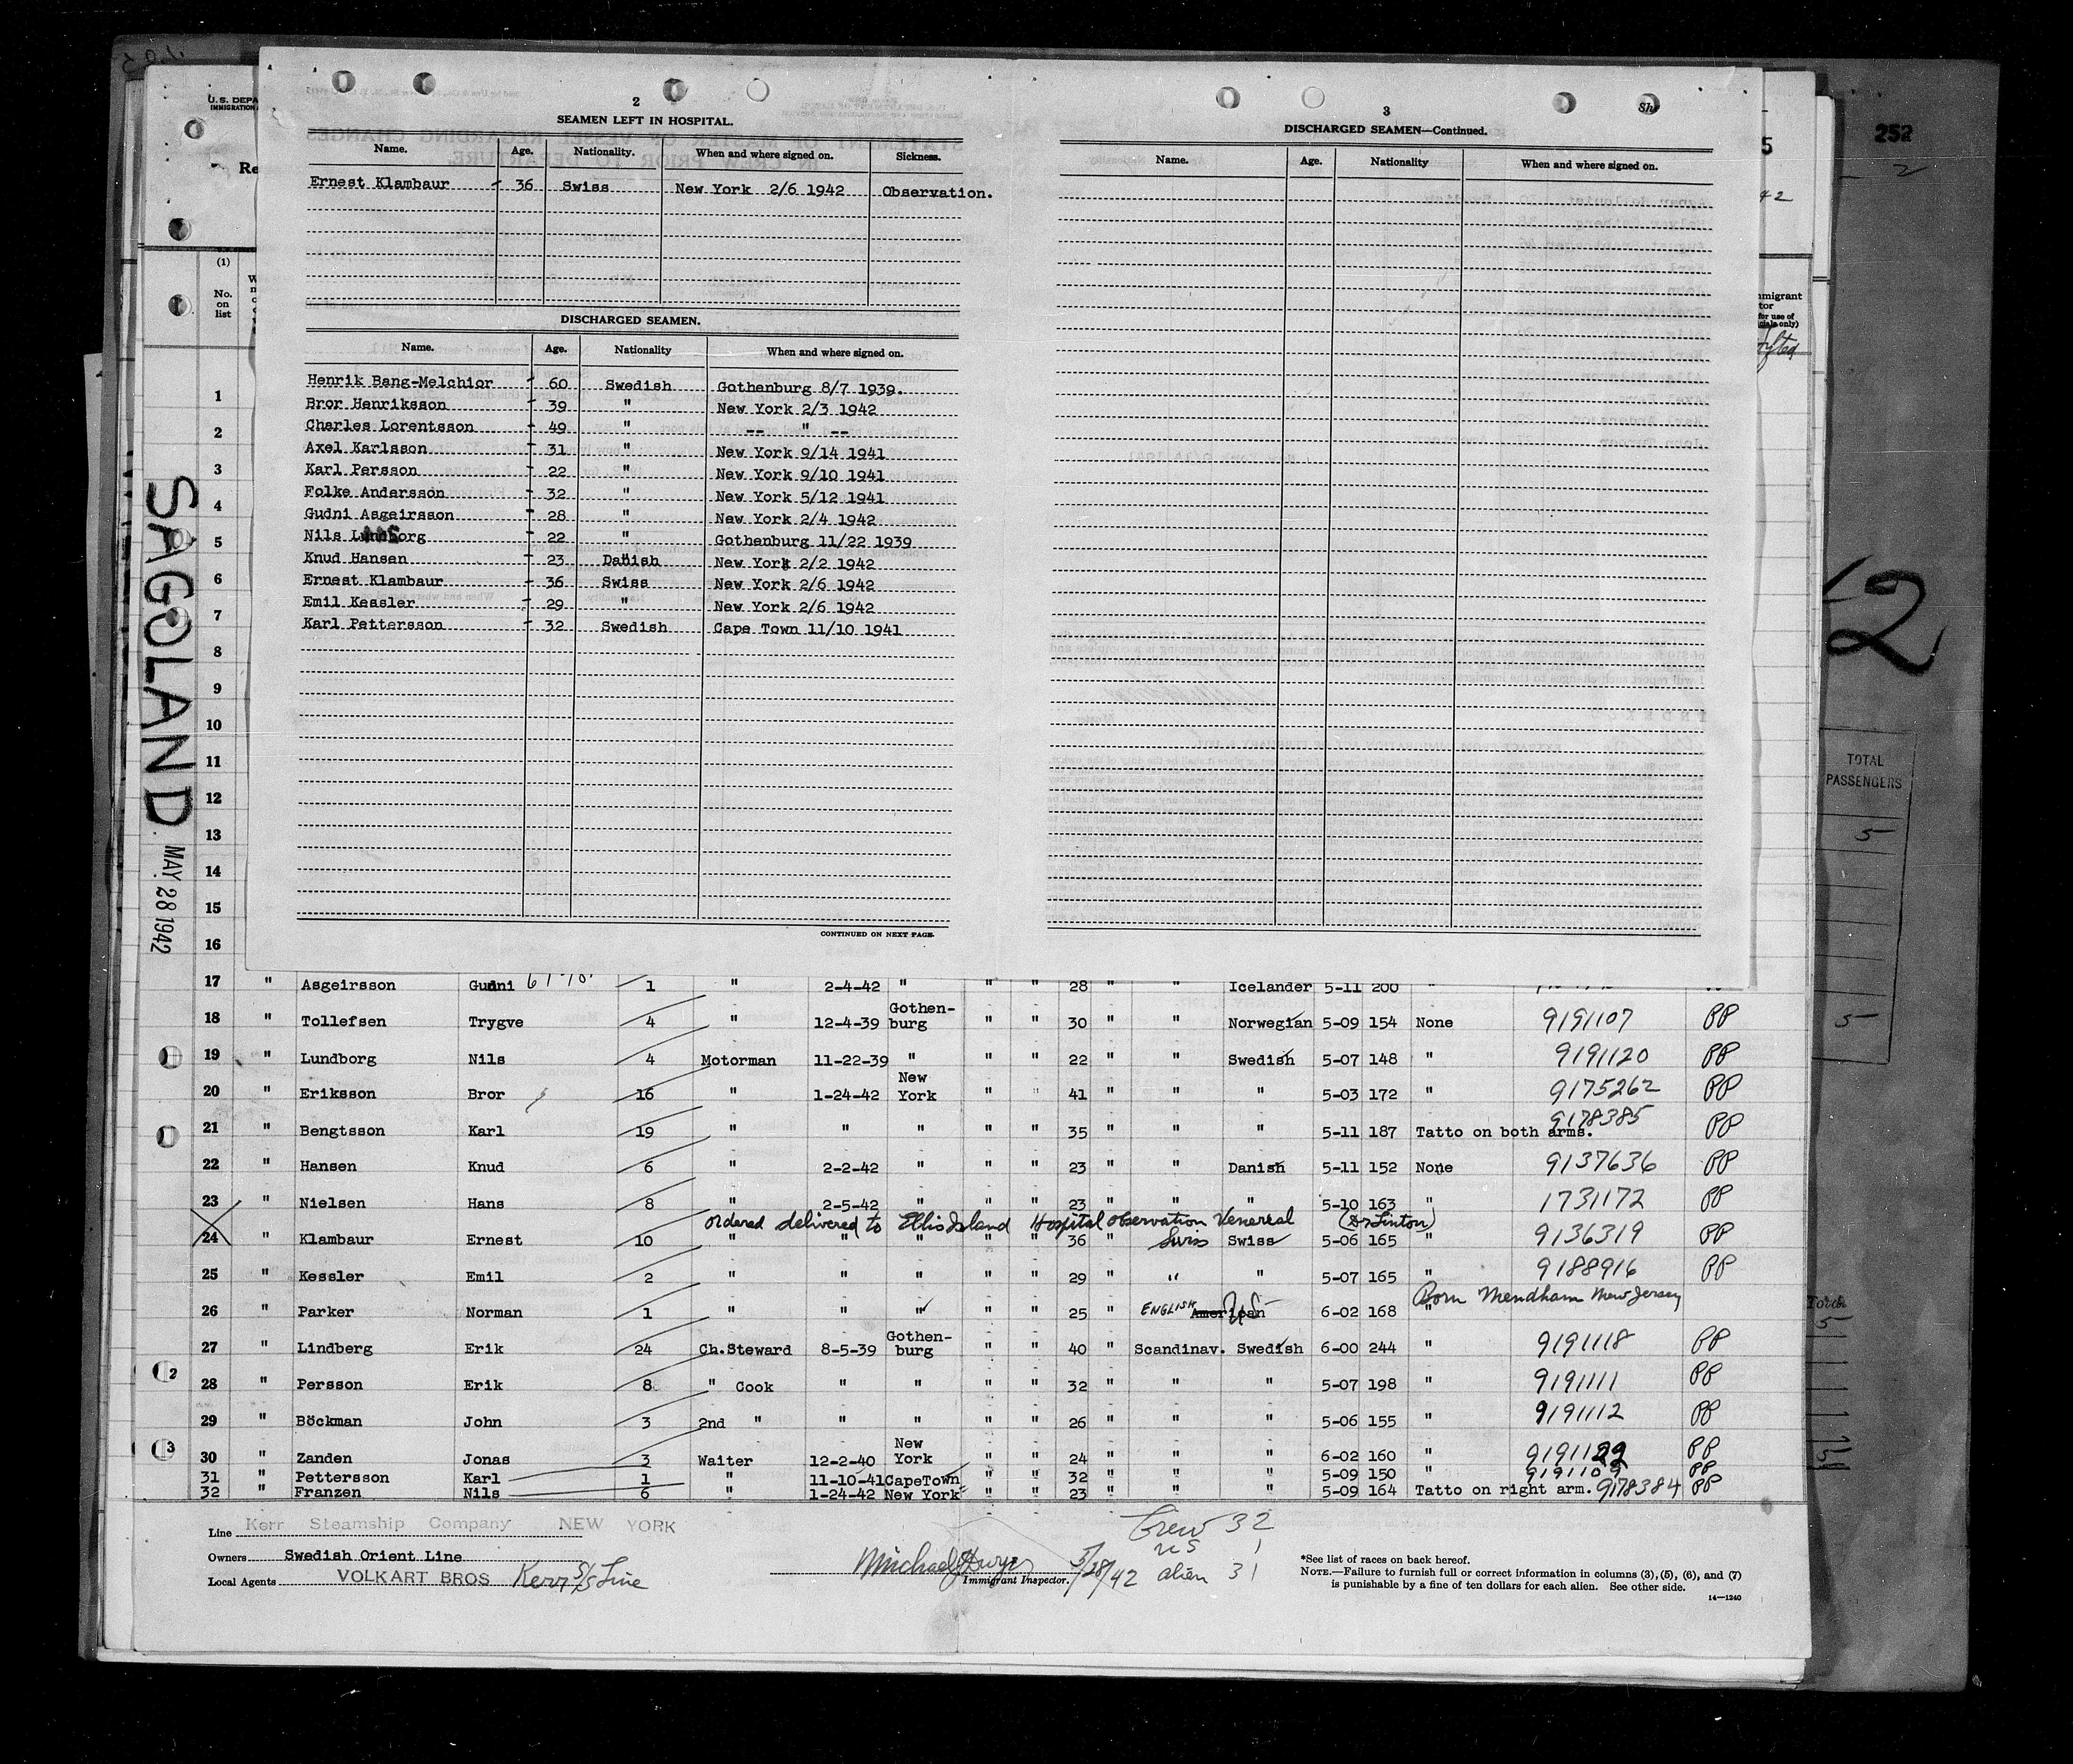 252
2
SAGOLAND MAY 28 1942
U.S. DEPA
IMMIGRATION
Re
(1)
No. on list
2
SEAMEN LEFT IN HOSPITAL.
Name. Age. Nationality. When and where signed on. Sickness.
Ernest Klambaur - 36 Swiss New York 2/6 1942 Observation.
DISCHARGED SEAMEN.
Name. Age. Nationality When and where signed on.
Henrik Bang-Melchior - 60 Swedish Gothenburg 8/7 1939.
Bror Henriksson - 39 " New York 2/3 1942
Charles Lorentsson - 49 " -- " --
Axel Karlsson - 31 " New York 9/14 1941
Karl Persson - 22 " New York 9/10 1941
Folke Andersson - 32 " New York 5/12 1941
Gudni Asgeirsson - 28 " New York 2/4 1942
Nils Lundborg - 22 " Gothenburg 11/22 1939
Knud Hansen - 23 Danish New York 2/2 1942
Ernest Klambaur - 36 Swiss New York 2/6 1942
Emil Kessler - 29 " New York 2/6 1942
Karl Pettersson - 32 Swedish Cape Town 11/10 1941
CONTINUED ON NEXT PAGE.
3
DISCHARGED SEAMEN—Continued.
Name. Age. Nationality When and where signed on.
5
42
mmigrant
tor
for use of
cials only)
12
TOTAL
PASSENGERS
5
5
1
2
3
4
5
6
7
8
9
10
11
12
13
14
15
16
17 " Asgeirsson Gudni 1 " 2-4-42 " " " 28 " " Icelander 5-11 200 "
18 " Tollefsen Trygve 4 " 12-4-39 Gothen-burg " " 30 " " Norwegian 5-09 154 None 9191107 PP
19 " Lundborg Nils 4 Motorman 11-22-39 " " " 22 " " Swedish 5-07 148 " 9191120 PP
20 " Eriksson Bror 16 " 1-24-42 New York " " 41 " " " 5-03 172 " 9175262 PP
21 " Bengtsson Karl 19 " " " " " 35 " " " 5-11 187 Tatto on both arms. 9178385 PP
22 " Hansen Knud 6 " 2-2-42 " " " 23 " " Danish 5-11 152 None 9137636 PP
23 " Nielsen Hans 8 " 2-5-42 " " " 23 " " " 5-10 163 " 1731172 PP
ordered delivered to Ellis Island Hospital observation Venereal (Dr Linton)
24 " Klambaur Ernest 10 " " " " " 36 " Swiss Swiss 5-06 165 " 9136319 PP
25 " Kessler Emil 2 " " " " " 29 " " " 5-07 165 " 9188916 PP
26 " Parker Norman 1 " " " " " 25 ENGLISH American US 6-02 168 " Born Mendham New Jersey
27 " Lindberg Erik 24 Ch.Steward 8-5-39 Gothen-burg " " 40 " Scandinav. Swedish 6-00 244 " 9191118 PP
28 " Persson Erik 8 " Cook " " " " 32 " " " 5-07 198 " 9191111 PP
29 " Böckman John 3 2nd " " " " " 26 " " " 5-06 155 " 9191112 PP
30 " Zanden Jonas 3 Waiter 12-2-40 New York " " 24 " " " 6-02 160 " 9191122 PP
31 " Pettersson Karl 1 " 11-10-41 CapeTown " " 32 " " " 5-09 150 " 9191109 PP
32 " Franzen Nils 6 " 1-24-42 New York " " 23 " " " 5-09 164 Tatto on right arm. 9178384 PP
Line Kerr Steamship Company NEW YORK
Owners Swedish Orient Line
Local Agents VOLKART BROS Kerr S/S Line
Michael J Dwyer 5/28/42
Immigrant Inspector.
Crew 32
US 1
alien 31
*See list of races on back hereof.
NOTE.—Failure to furnish full or correct information in columns (3), (5), (6), and (7)
is punishable by a fine of ten dollars for each alien. See other side.
14—1240